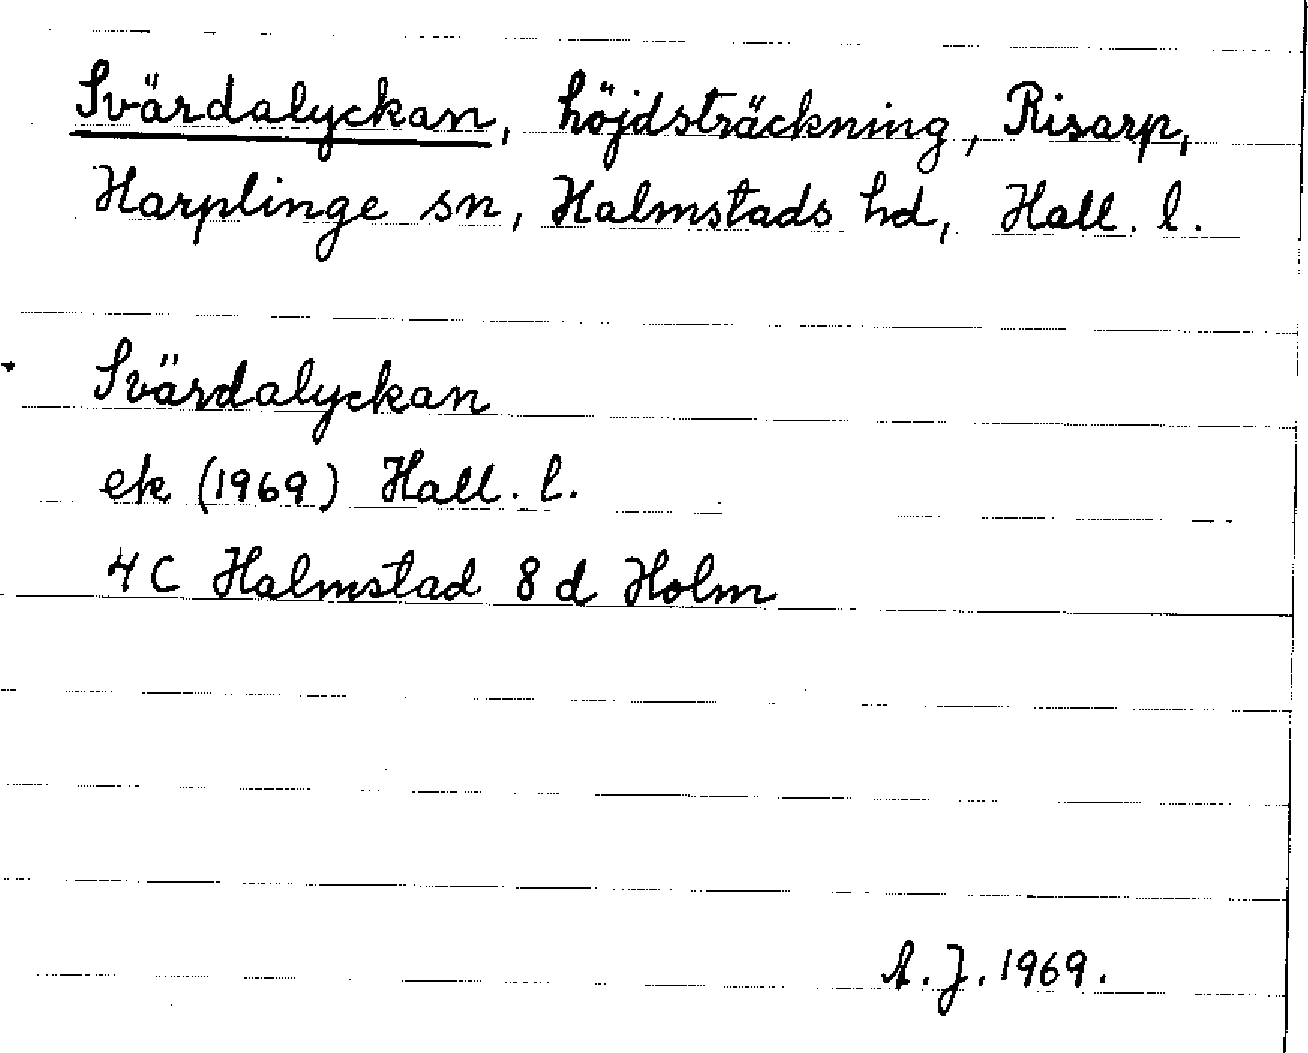 Svärdalyckan, höjdsträckning, Risarp,
Harplinge sn, Halmstads hd, Hall. l.
Svärdalyckan
ek (1969) Hall. l.
4C Halmstad 8 d Holm
A.J. 1969.